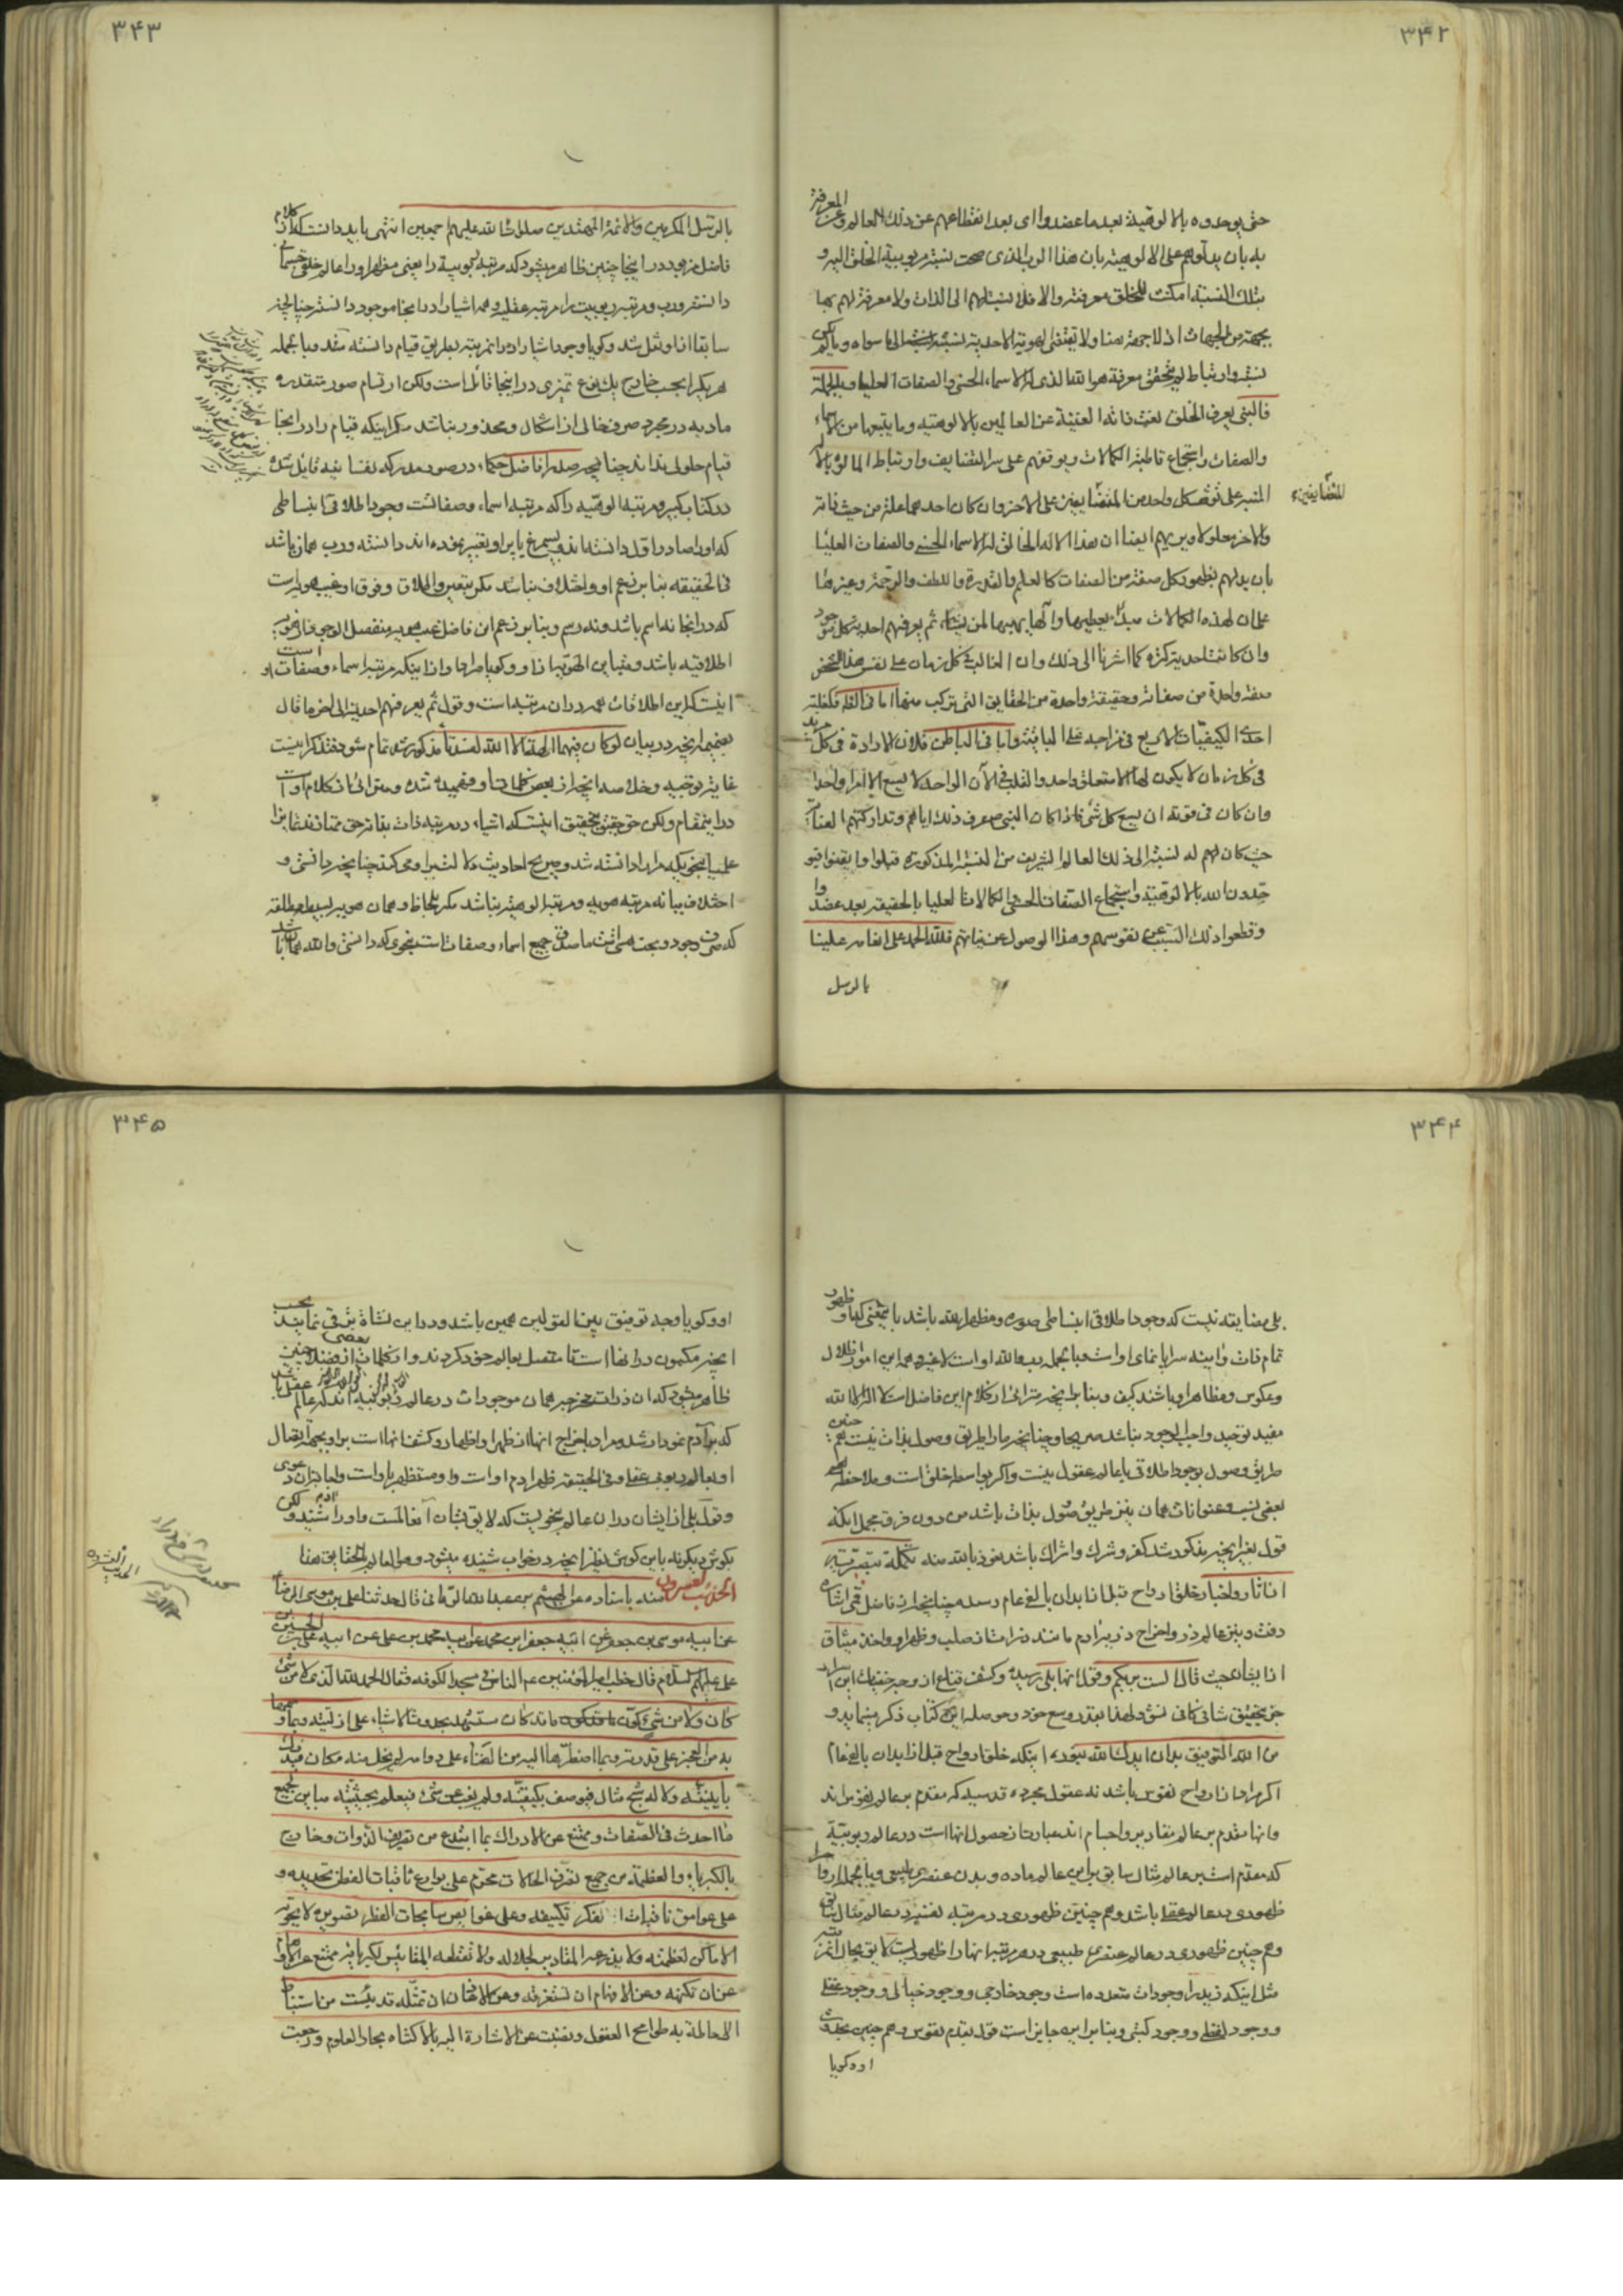 ٣۴٢
حتی یوحدوه بالالوهیة بعد ما عضدوا ای بعد انقطاعهم عن ذلك العالم وعن المعرفة
به بان یدلوهم علی الالوهیة بان هذا الرب الذی صحت نسبته ربوبیة الخلق الیه و
بتلك النسبة امکنت للخلق معرفته والا فلا نسبة لهم الی الذات ولا معرفة لهم بها
بجهة من الجهات اذ لا جهة هنا ولا یقتضی لهویة الاحدیة نسبة الی ما سواه ولم یکن
نسبة وارتباط لم یتحقق معرفة هو الله الذی له الاسماء الحسنی والصفات العلیا وبالجملة
فالنبی یعرف الخلق نعت ذاته الغنیة عن العالمین بالالوهیة وما یتبعها من الاسماء
والصفات واستجماع قاطبة الکمالات ویوقفهم علی سر التضایف وارتباط المالوه بالاله
المنبه علی توقف کل واحد من المتضایفین علی الاخر وان کان احدهما علة من حیث ذاته
للمتضایفین
والاخر معلولا ویریهم ایضا ان هذا الاله الخالق له الاسماء الحسنی والصفات العلیا
بان یدلهم بظهور کل صفة من الصفات کالعلم والقدرة واللطف والرحمة وغیرها
علی ان لهذه الکمالات مبدأ یعطیها والها یهبها لمن یشاء ثم یعرفهم احدیة کل موجود
وان کانت احدیة کثرة کما اشرنا الی ذلك وان الغالب فی کل زمان علی نفس هذا الشخص
صفة واحدة من صفاته وحقیقة واحدة من الحقایق التی ترکب منها اما فی الظ فکغلبة
احدی الکیفیات الاربع فی مزاجه علی الباقیة واما فی الباطن فلان الارادة فی کل مرید
فی کل زمان لا یکون لها الا متعلق واحد والقلب فی الآن الواحد لا یسع الا امرا واحدا
وان کان فی قوته ان یسع کل شیء فاذا کان النبی معرف ذلك ایاهم وتدارکتهم العنایة
حیث کان لهم له نسبة الی ذلك العالم الشریف من النسبة المذکورة قبلوا وایقنوا فیو
حدون الله بالالوهیة واستجماع الصفات الحسنی والکمالات العلیا بالحقیقة بعد عضدوا
وقطعوا ذلك النسبة عن نفوسهم وهذا الوصول عن نیاتهم فلله الحمد علی انعامه علینا
بالرسل
٣۴٣
بالرسل المکرمین والائمة المهتدین صلوات الله علیهم اجمعین انتهی باید دانست که از کلام
فاضل مزبور در اینجا چنین ظاهر میشود که مرتبه ربوبیة را یعنی مظاهر او را عالم خلق جسمانی
دانسته ورب ومرتبه ربوبیت را مرتبه عقلیه وهمه اشیا را در انجا موجود دانسته چنانچه
سابقا از او نقل شد وکویا وجود اشیا را در انمرتبه بطریق قیام دانسته شد وبالجمله
هر یك را بحسب خارج یك نوع تمیزی در اینجا قائل است ولکن ارتسام صور متقدره
مادیه در مجرد صرف خالی از اشکال ومحذور نباشد مکر اینکه قیام را در اینجا
قیام حلولی نداند چنانچه صدر افاضل حکماء در صور مدرکه نفسانیه قایل شده
در کتاب کبیر ومرتبه الوهیه را که مرتبه اسماء وصفاتست وجود اطلاقی انبساطی
که اورا صادر اول دانسته اند وبسمی یا براو تعبیر نموده اند دانسته ورب همان باشد
فی الحقیقه بنا بر زعم او واختلاف نباشد مکر بتعین واطلاق وفوق او غیب هویت است
که در انجا نه اسم باشد ونه رسم وبنابر زعم این فاضل غیب هویه منفصل الوجود از هویة
اطلاقیه باشد ومتباین الهویة از او وکویا مراد از اینکه مرتبه اسماء وصفات است او
اینست که این اطلاقات همه در ان مرتبه است وقول ثم یعرفهم احدیة الی اخر ما قال
بضمیمه انچه در بیان لوکان فیهما الهة الا الله لفسدتا مذکور شد تمام شود فتذکر اینست
غایة توجیه وخلاصه انچه از بعض کلمات او فهمیده شده ومترائی از کلام او است
در اینمقام ولکن حق حقیق بتحقیق اینست که اشیاء در مرتبه ذات بقاء حق ممتازند تمایزا
علمیا بنحویکه مراد دانسته شد وصریح احادیث دلالت بر او می کند چنانچه دانستی و
اختلاف میانه مرتبه هویه ومرتبه الوهیه نباشد مکر بلحاظ وهمان هویه بسیطه مطلقه
که صرف وجود وبحت هستی است ما صدق جمیع اسماء وصفات است بنحوی که دانستی والله یعلم
٣۴۴
بلی مضایقه نیست که وجود اطلاقی انبساطی صوره ومظهر الله باشد باینمعنی که او ظهور
تمام ذات وآینه سراپا نمای او است وبالجمله رب عالم الله او است لا غیر وهمه این امور ظلال
وعکوس ومظاهر او باشند کیف وبنابر انچه مترائی از کلام این فاضل است لا اله الا الله
مفید توحید واجب الوجود نباشد صریحا وچنانچه مارا طریق وصول بذات نیست هم چنین
طریق وصول بوجود اطلاقی یا عالم عقول نیست واکر بواسطه خلق است وملاحظه
بعض نسب وعنوانات همان بنز طریق وصول بذات باشد من دون فرق مجمل انکه
قول بغیر انچه مذکور شد کفر وشرك واشراك باشد نعوذ بالله منه تکملة تبصرتیه
از اثار واخبار خلق ارواح قبل از ابدان بالفی عام رسیده چنانچه از فاضل قمی اشاره
رفت وبنز عالم ذر واخراج ذریه ادم مانند ذرات از صلب وظهر او واخذ میثاق
از ایشان بحیث قال الست بربکم وقول انها بلی رسیده وکشف قناع از وجه حقیقت این اسرار
جز بتحقیق شافی کافی نشود ولهذا بقدر وسع خود وحوصله این کتاب ذکر مینماید و
من الله التوفیق بدان ایدك الله بنوره اینکه خلق ارواح قبل از ابدان بالفی عام
اکر مراد از ارواح نفوس باشد نه عقول مجرده قدسیه که مقدم بر عالم نفوس اند
وانها مقدم بر عالم مقادیر واجسام اند عبارت از حصول انها است در عالم ربوبیة
که مقدم است بر عالم مثال سابق بر این عالم ماده وبدن عنصری طبیعی وبالجمله ارواح را
ظهوری در عالم عقل باشد وهم چنین ظهوری در مرتبه نفسیة در عالم مثال سابق
وهم چنین ظهوری در عالم عنصری طبیعی در هر مرتبه انها را ظهور است لایق بحال انمرتبه
مثل اینکه زید را وجودات متعدده است وجود خارجی ووجود خیالی ووجود عقلی
ووجود لفظی ووجود کتبی وبنابر این جایز است قول بتقدم نفوس وهم چنین بحدوث
او وکویا
٣۴۵
او وکویا وجه توفیق بین القولین همین باشد ودر این نشاة ترقی نمایند بحسب
انچه مکمون در انها است تا متصل بعالم حق کردند واز کلمات بعضی از فضلا چنین
ظاهر میشود که ان ذرات همان موجودات در عالم ربوبیة اند که عالم عقل باشد
که بر آدم نمودار شد ومراد باخراج انها از ظهر او اظهار وکشف انها است بر او بجهة اتصال
او بعالم ربوبی عقلی وفی الحقیقه ظهر ادم او است واو مستظهر باو است واجابت ان دعوی
وقول بلی از ایشان در ان عالم بنحویست که لایق بشان آنعالمست واو را شنید ادم لکن
بکوش دیکر نه باین کوش نظیر انچه در خواب شنیده میشود وهو العالم بالحقایق هنا
الحدیث العشرون مسند باسناده عن الهیثم بن عبد الله الرمانی قال حدثنا علی بن موسی الرضا
عن ابیه موسی بن جعفر عن ابیه جعفر ابن محمد عن ابیه محمد بن علی عن ابیه علی بن الحسین
علی علیهم السلام قال خطب امیر المؤمنین ع الناس فی مسجد الکوفه فقال الحمد لله الذی لا من شیء
کان ولا من شیء کون ما قد کان مستشهد بحدوث الاشیاء علی ازلیته وبما وسمها
به من العجز علی قدرته وبما اضطرها الیه من الفناء علی دوامه لم یخل منه مکان فیدرك
باینیته ولا له شبح مثال فیوصف بکیفیته ولم یغب عن شیء فیعلم بحیثیته مباین لجمیع
ما احدث فی الصفات وممتنع عن الادراك بما ابتدع من تصریف الذوات وخارج
بالکبریاء والعظمة من جمیع تصرف الحالات محرم علی بوارع ثاقبات الفطن تحدیده و
علی عوامق ثاقبات الفکر تکییفه وعلی غوایص سابحات الفطر تصویره لا تحویه
الاماکن لعظمته ولا تذرعه المقادیر لجلاله ولا تقطعه المقائیس لکبریائه ممتنع عن الاوهام
عن ان تکتنهه وعن الافهام ان تستغرقه وعن الاذهان ان تمثله قد یئست من استنباط
الاحاطة به طوامح العقول ونضبت عن الاشارة الیه بالاکتناه بحار العلوم ورجعت